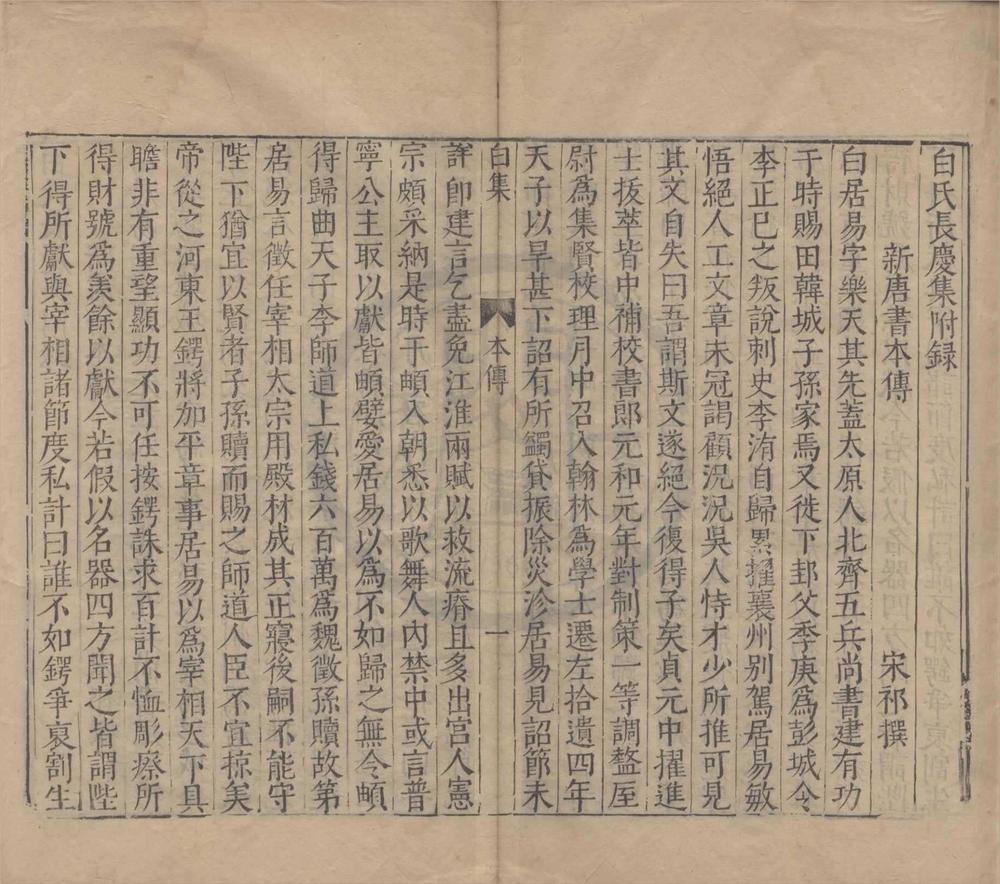 白氏長慶集附録
新唐書本傳　宋祁撰
白居易字樂天其先蓋太原人北齊五兵尚書建有功
于時賜田韓城子孫家焉又徙下邽父季庚爲彭城令
李正已之叛說刺史李洧自歸累擢襄州別駕居易敏
悟絕人工文章未冠謁顧況況吳人恃才少所推可見
其文自失曰吾謂斯文遂絕今復得子矣貞元中擢進
士拔萃皆中補校書郎元和元年對制策一等調盩厔
尉爲集賢校理月中召入翰林爲學士遷左拾遺四年
天子以旱甚下詔有所蠲貸振除災沴居易見詔節未
白集　本傳　一
詳即建言乞盡免江淮兩賦以救流瘠且多出宮人憲
宗頗采納是時于頔入朝悉以歌舞人內禁中或言普
寧公主取以獻皆頔嬖愛居易以爲不如歸之無令頔
得歸曲天子李師道上私錢六百萬爲魏徵孫贖故第
居易言徵任宰相太宗用殿材成其正寢後嗣不能守
陛下猶宜以賢者子孫贖而賜之師道人臣不宜掠美
帝從之河東王鍔將加平章事居易以爲宰相天下具
瞻非有重望顯功不可任按鍔誅求百計不恤彫瘵所
得財號爲羨餘以獻今若假以名器四方聞之皆謂陛
下得所獻與宰相諸節度私計曰誰不如鍔爭裒割生